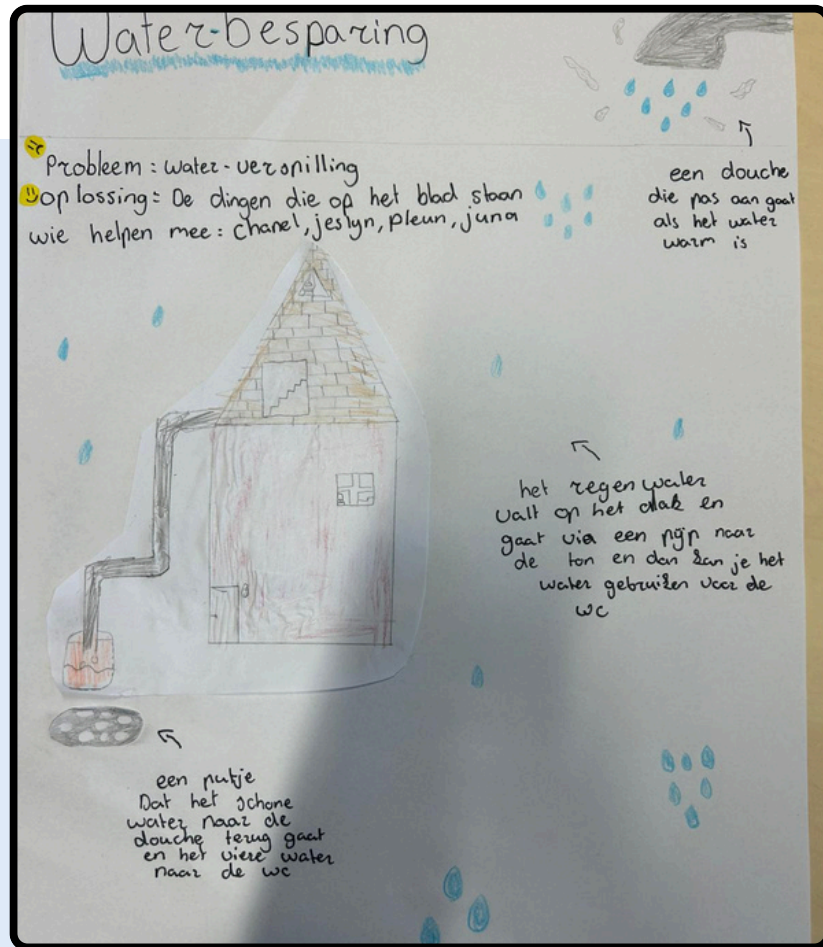 Water-besparing
Probleem: water-verspilling
oplossing: De dingen die op het blad staan
wie helpen mee: chanel, jeslyn, pleun, juna
een douche
die pas aan gaat
als het water
warm is
het regenwater
valt op het dak en
gaat via een pijp naar
de ton en dan kan je het
water gebruiken voor de
wc
een putje
Dat het schone
water naar de
douche terug gaat
en het vieze water
naar de wc